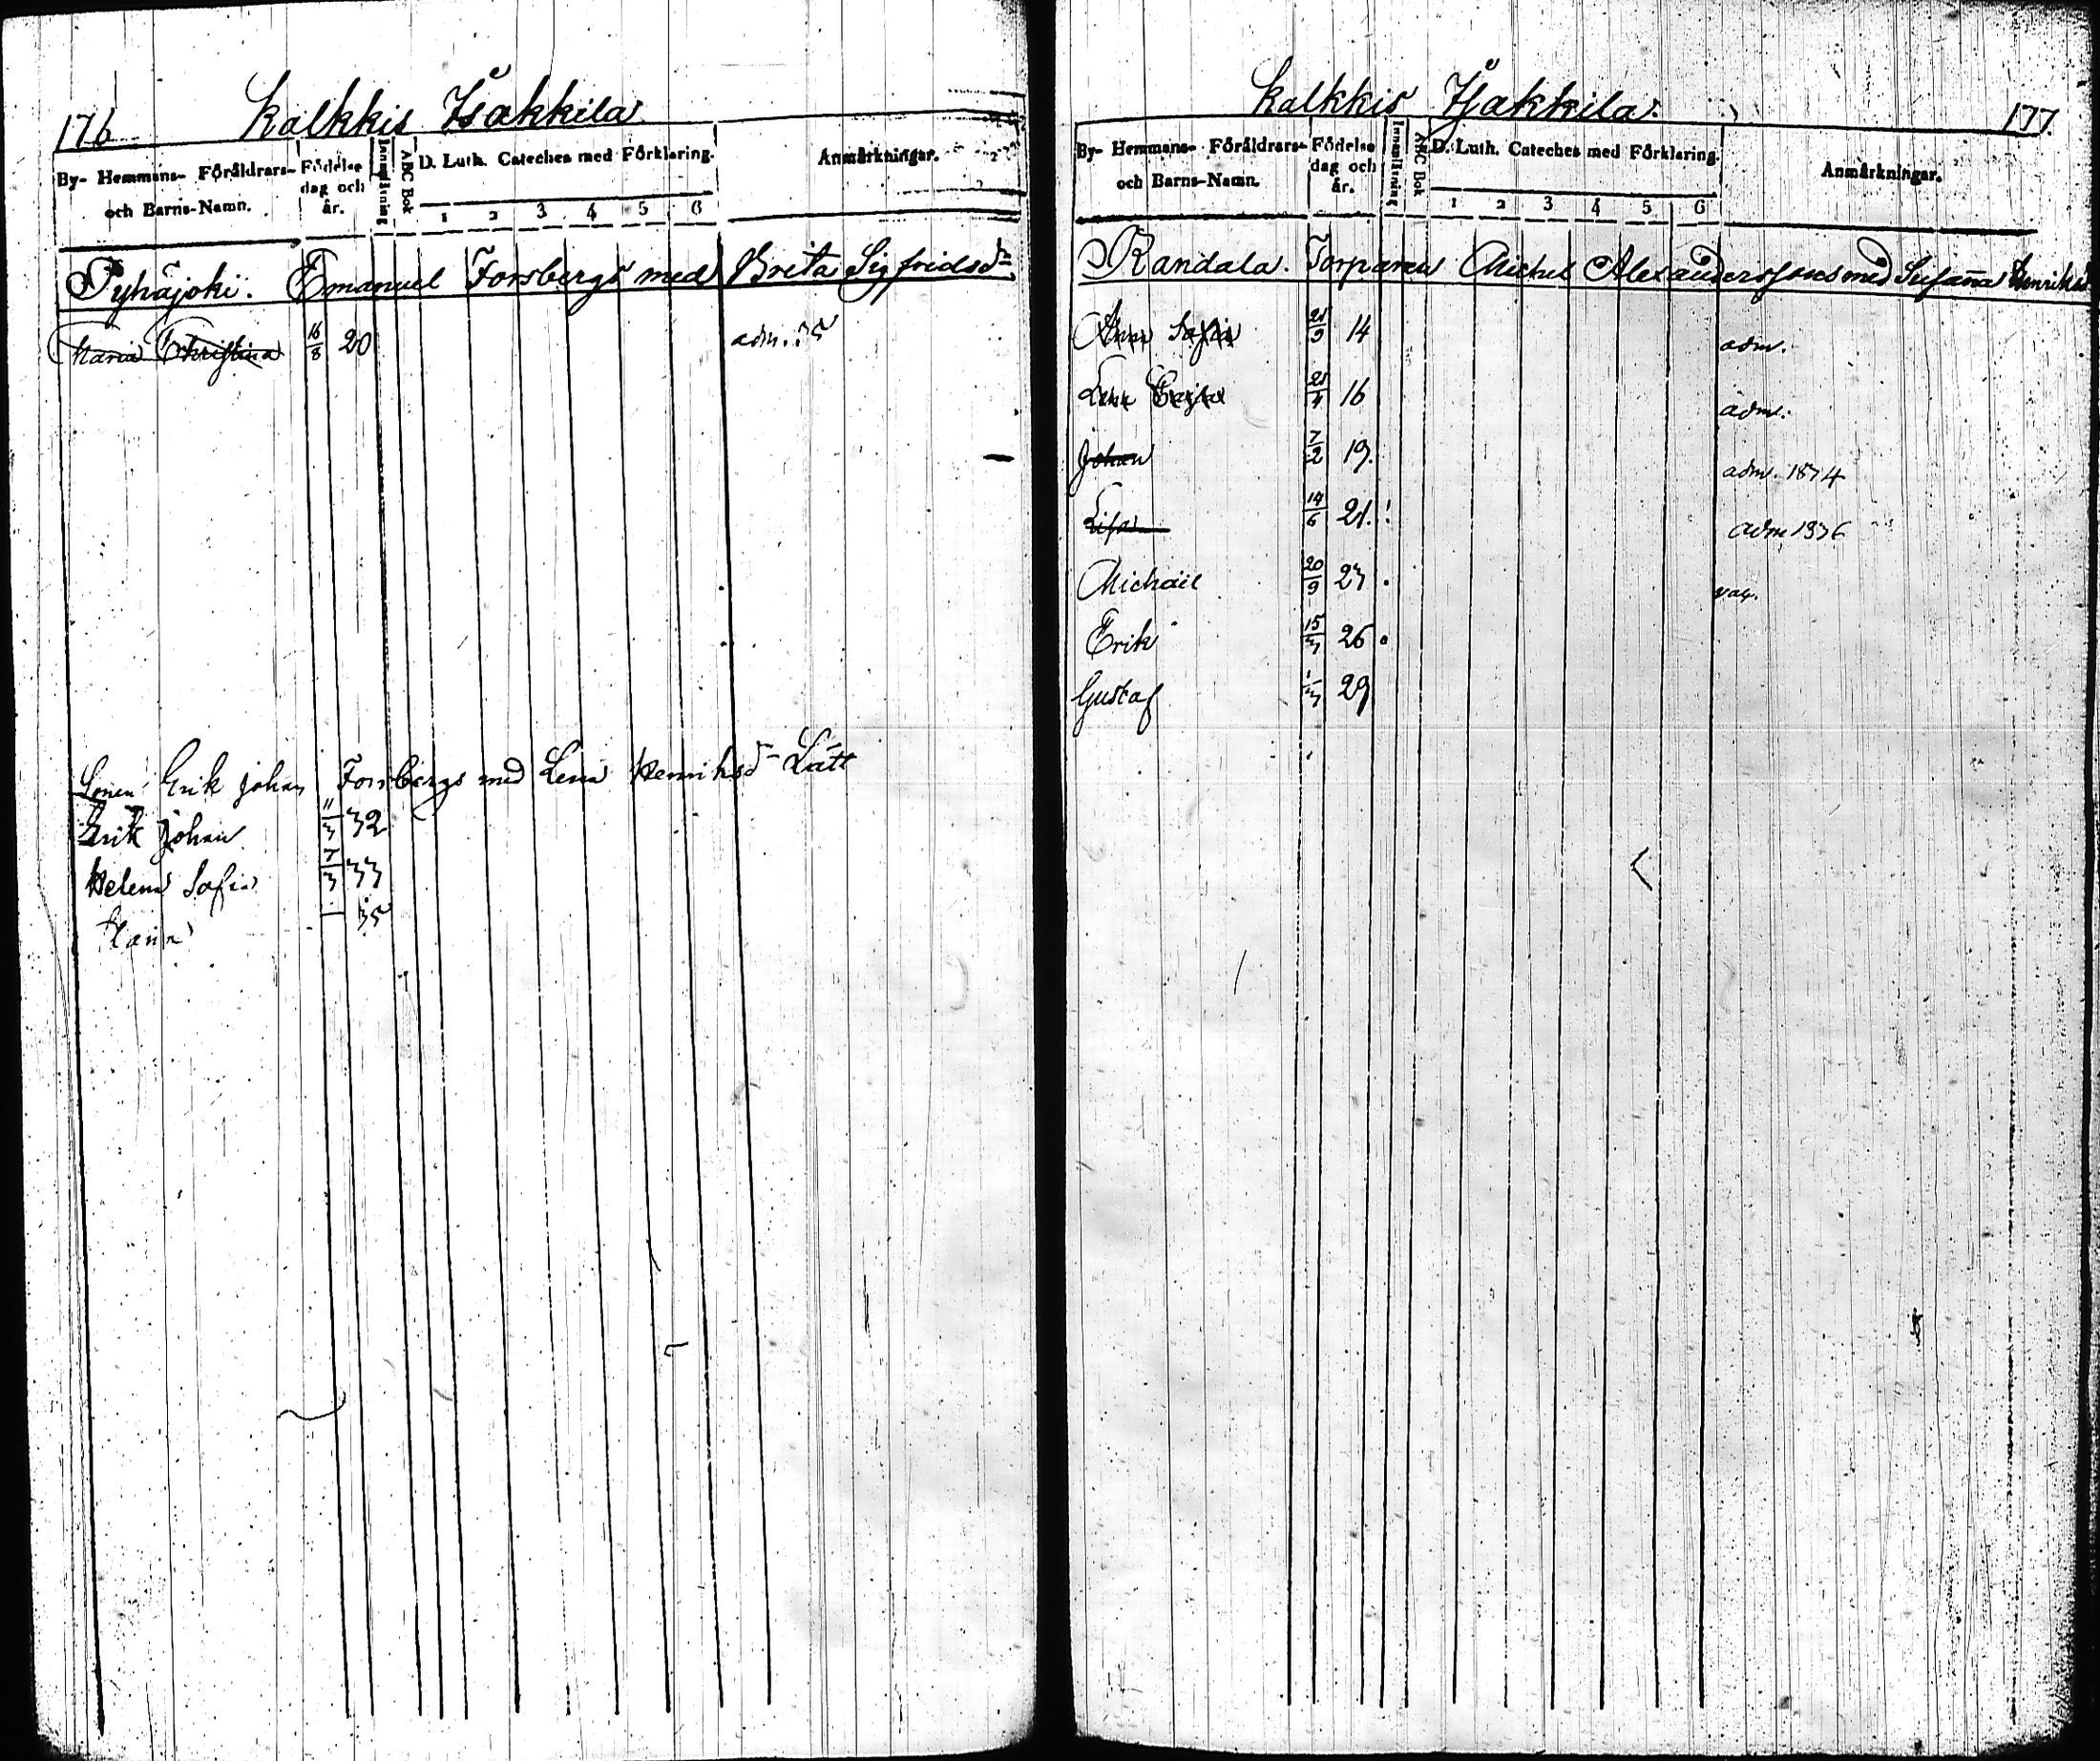 176 Kalkkis Isakkila
By- Hemmans- Föräldrars- och Barns-Namn. Födelse dag och år. Innanläsning ABC Bok D. Luth. Cateches med Förklaring. 1 2 3 4 5 6 Anmärkningar.
Pyhäjoki. Emanuel Forsbergs med Brita Sigfridsdr
Maria Christina 16/8 20 adm. 35
Sonen Erik Johan Forsbergs med Lena Henriksdr Lätt
Erik Johan 11/3 32
Helena Sofia 7/3 33
35
Kalkkis Isakkila. 177.
By- Hemmans- Föräldrars- och Barns-Namn. Födelse dag och år. Innanläsning ABC Bok D. Luth. Cateches med Förklaring. 1 2 3 4 5 6 Anmärkningar.
Kandala. Torparen Michel Alexanderssons med Susanna Henriksd
Anna Sofia 21/9 14 adm.
Lena Cajsa 21/4 16 adm.
Johan 7/2 19. adm. 1834
Lisa 14/6 21. adm 1836
Michaël 20/9 23 vac.
Erik 15/3 26
Gustaf 1/3 29